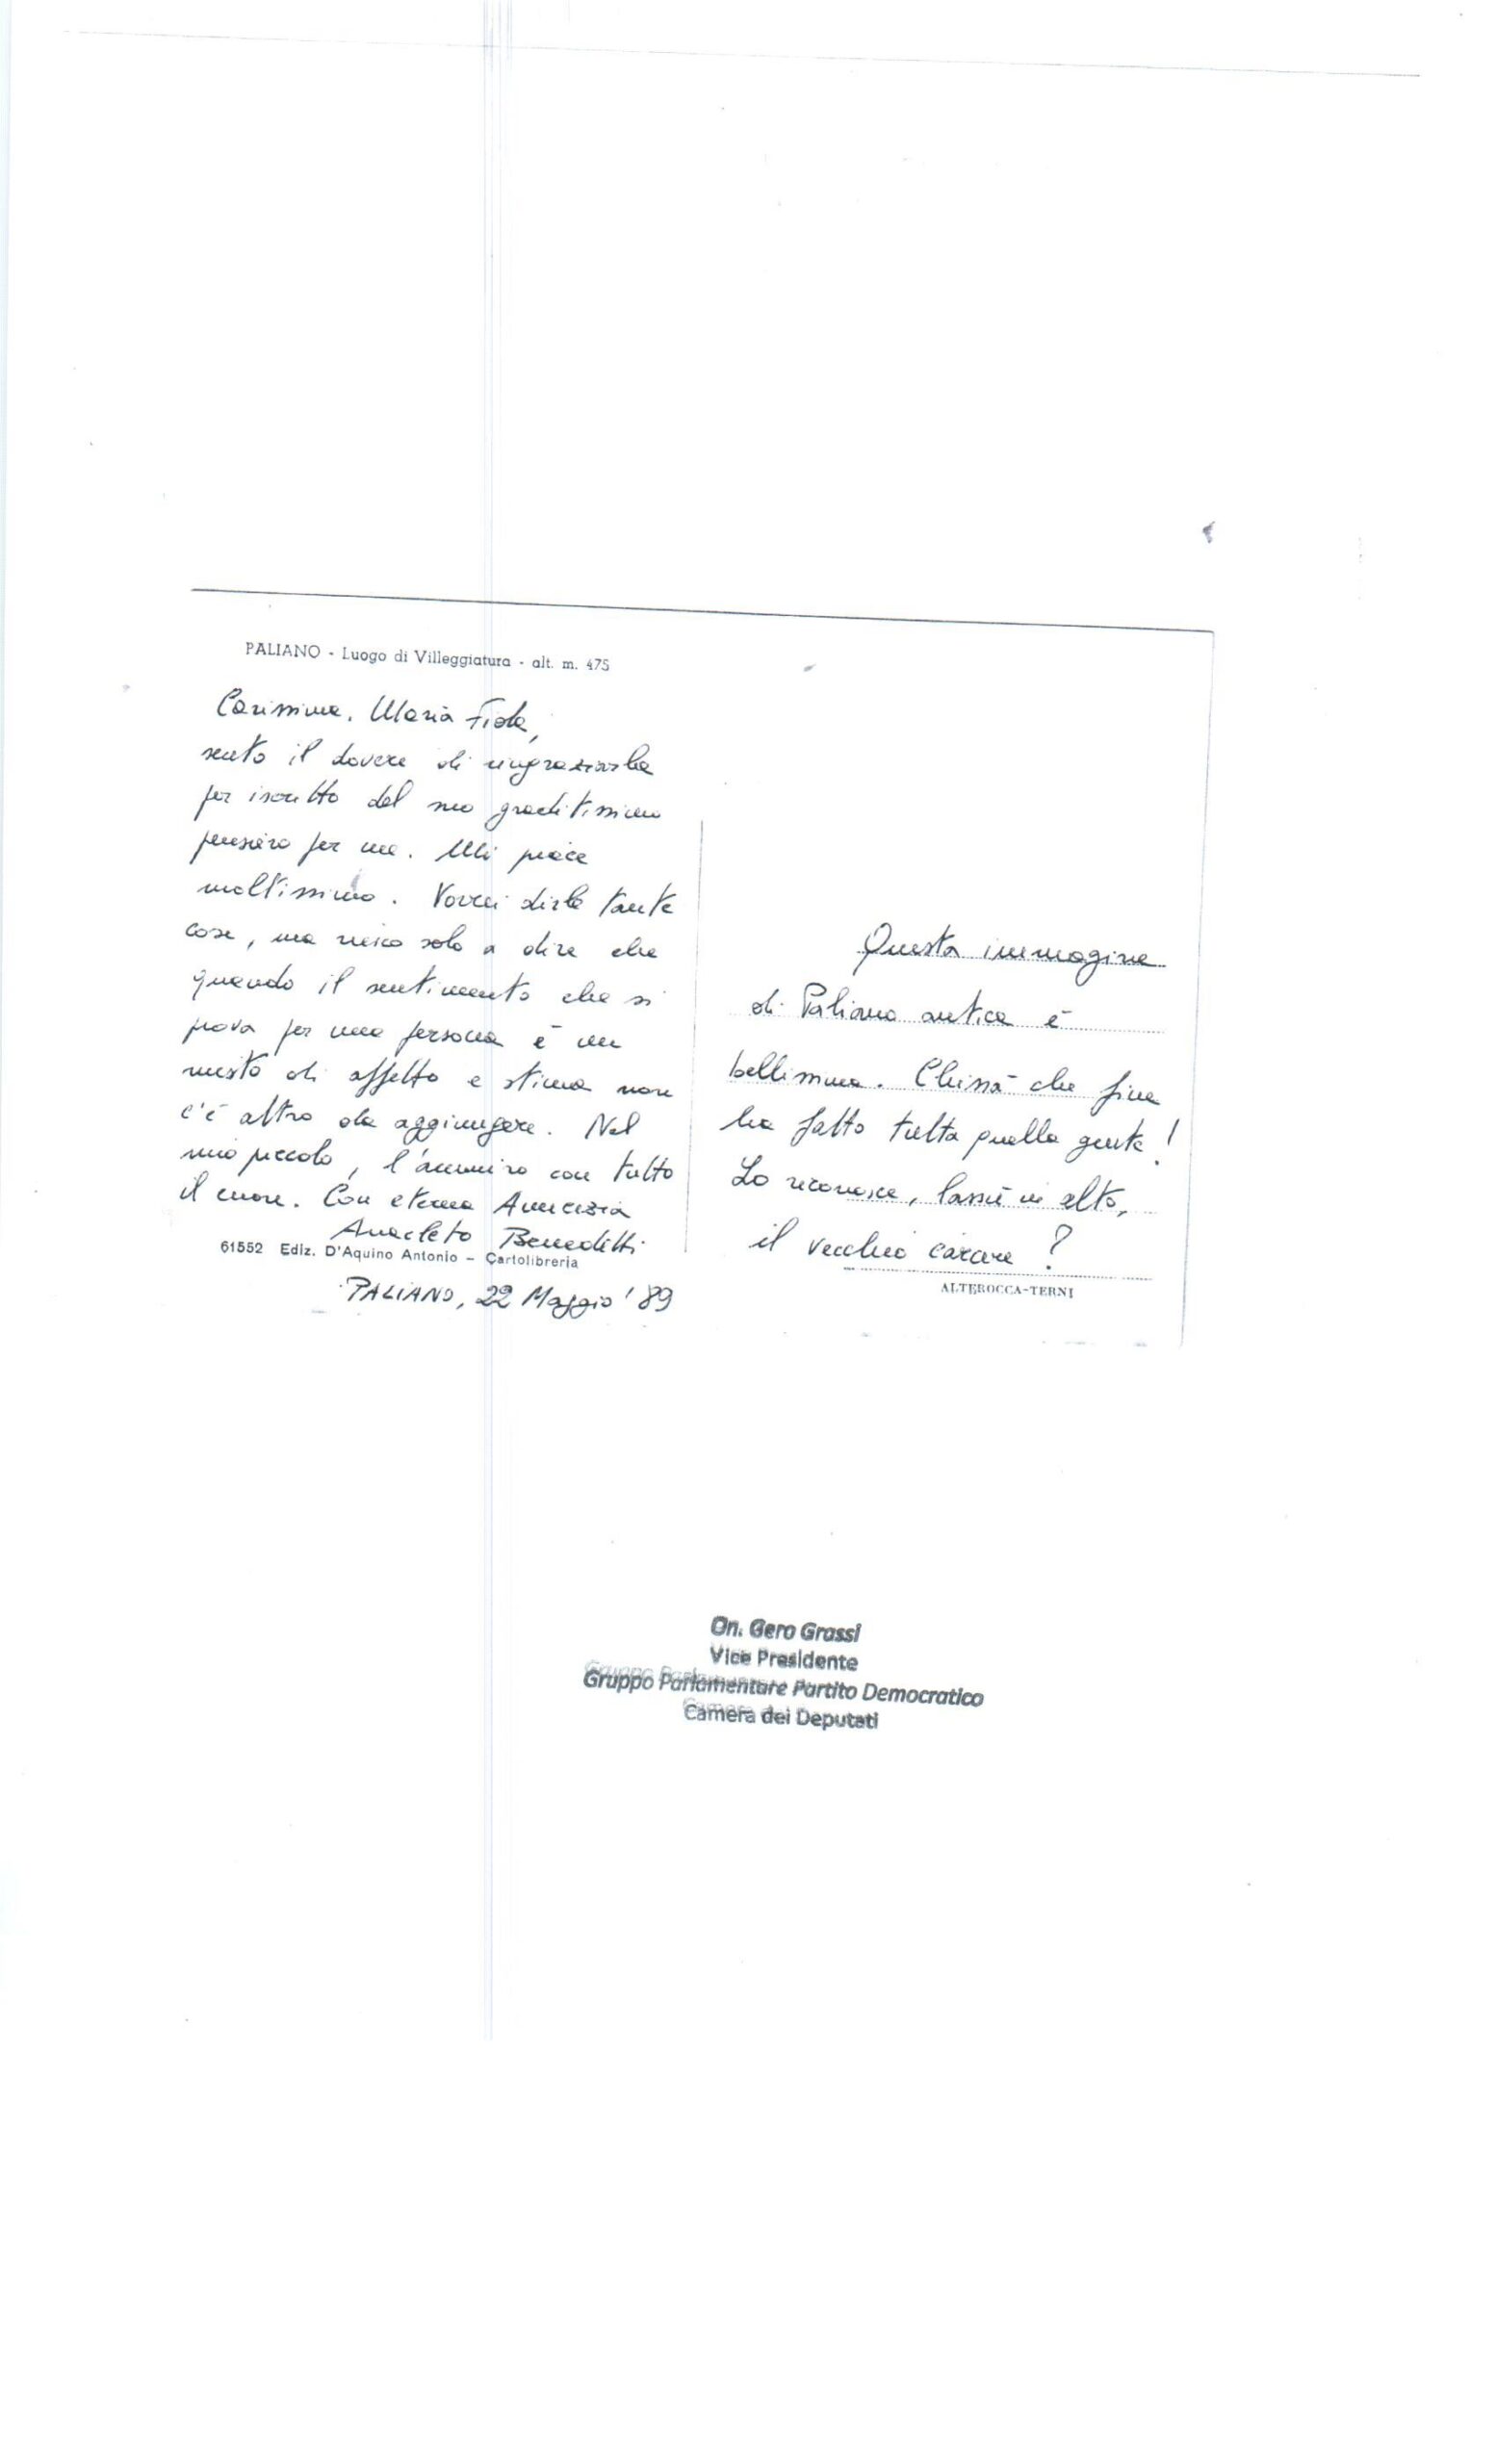 PALIANO - Luogo di Villeggiatura - alt. m. 475
Carissima, Maria Fida,
sento il dovere di ringraziarla
per iscritto del suo graditissimo
pensiero per me. Mi piace
moltissimo. Vorrei dirle tante
cose, ma riesco solo a dire che
quando il sentimento che si
prova per una persona è un
misto di affetto e stima non
c'è altro da aggiungere. Nel
mio piccolo, l'ammiro con tutto
il cuore. Con eterna Amicizia
Anacleto Benedetti
61552 Ediz. D'Aquino Antonio - Cartolibreria
PALIANO, 22 Maggio '89
Questa immagine
di Paliano antica è
bellissima. Chissà che fine
ha fatto tutta quella gente!
Lo riconosce, lassù in alto,
il vecchio carcere?
ALTEROCCA-TERNI
On. Gero Grassi
Vice Presidente
Gruppo Parlamentare Partito Democratico
Camera dei Deputati